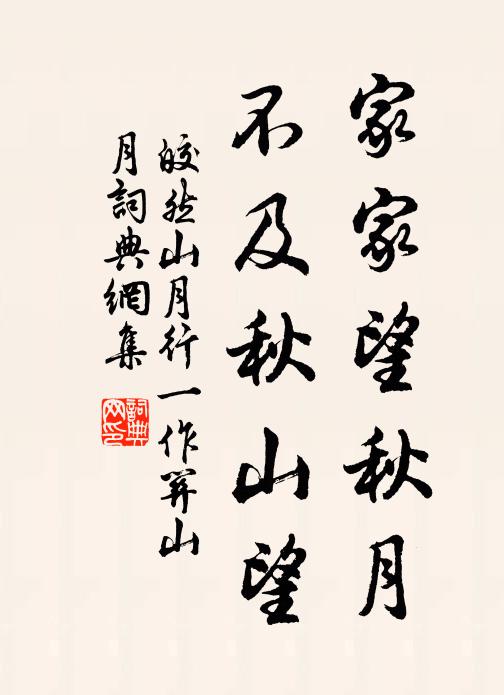 家家望秋月
不及秋山望
皎然山月行一作關山
月詞典網集
詞典網印